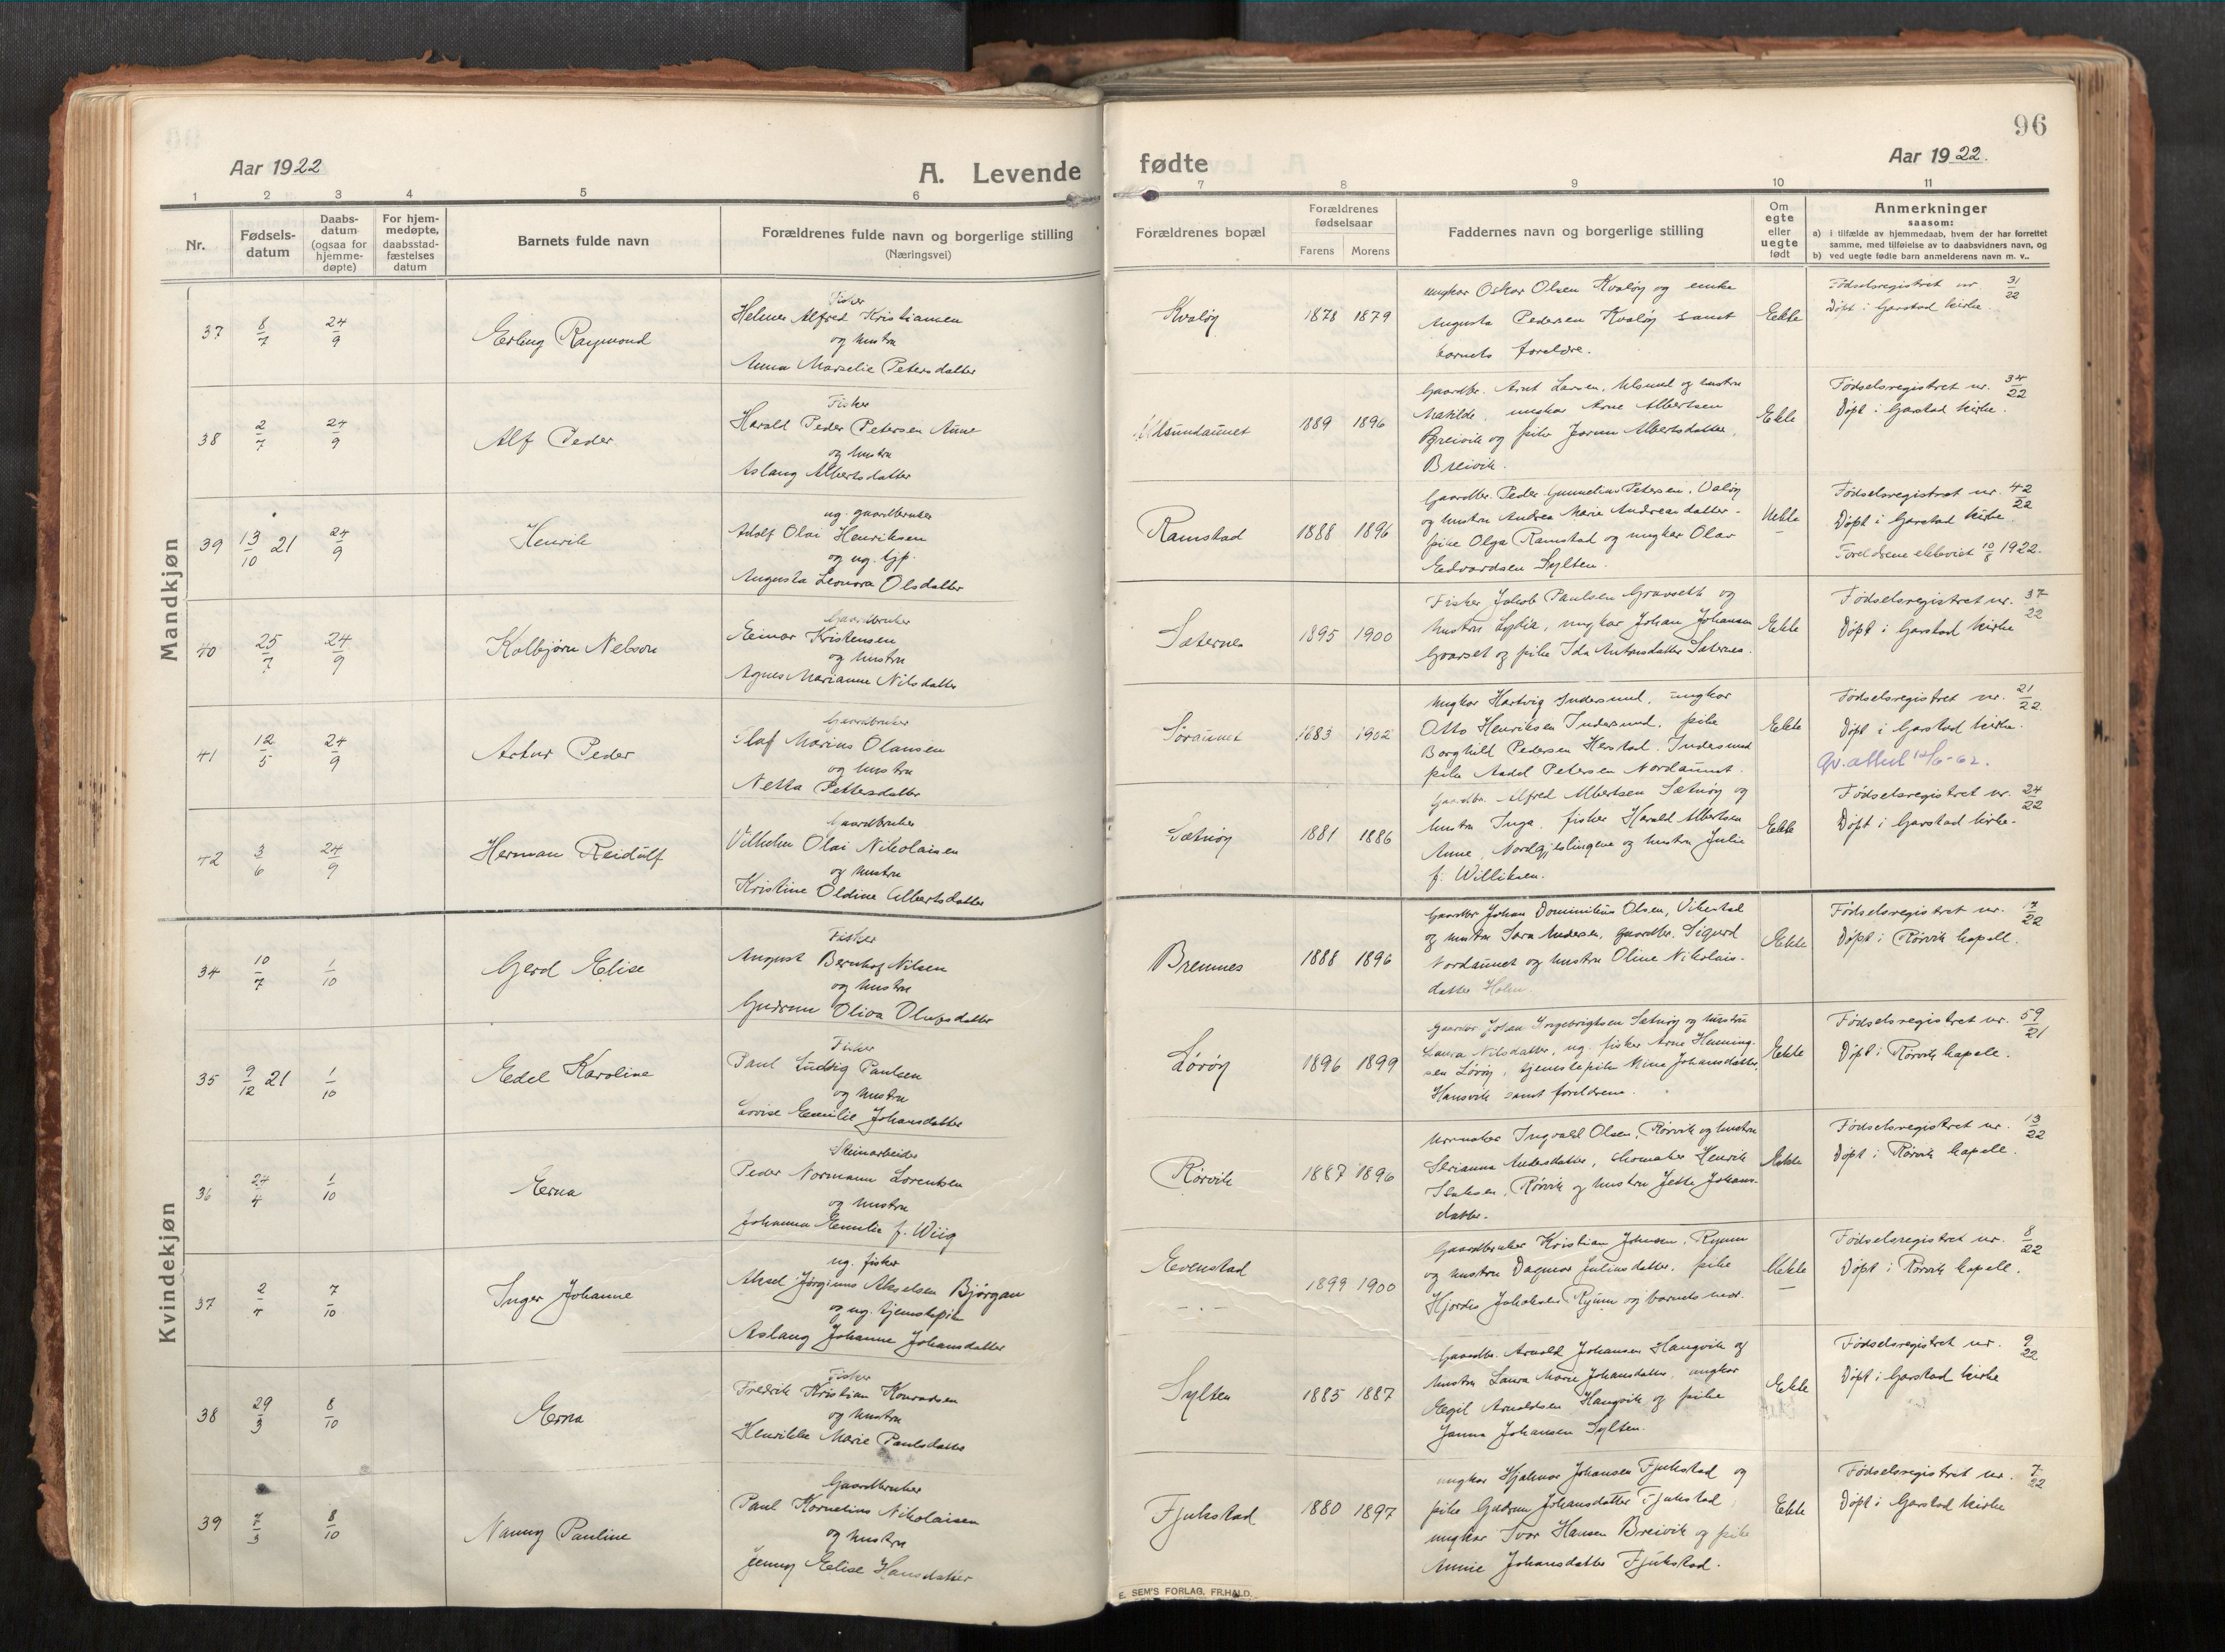 96
Aar 1922
A. Levende
fødte
Aar 1922.
1 2 3 4 5 6 7 8 9 10 11
Nr.
Fødsels-
datum
Daabs-
datum
(ogsaa for
hjemme-
døpte)
For hjem-
medøpte,
daabsstad-
fæstelses
datum
Barnets fulde navn
Forældrenes fulde navn og borgerlige stilling
(Næringsvei)
Forældrenes bopæl
Forældrenes
fødselsaar
Farens Morens
Faddernes navn og borgerlige stilling
Om
egte
eller
uegte
født
Anmerkninger
saasom:
a) i tilfælde av hjemmedaab, hvem der har forrettet
samme, med tilføielse av to daabsvidners navn, og
b) ved uegte fødte barn anmelderens navn m. v..
Mandkjøn
37 8/7 24/9 Erling Raymond
Fisker
Helmer Alfred Kristiansen
og hustru
Anna Marselie Petersdatter
Kvaløy 1878 1879
ungkar Oskar Olsen Kvaløy og enke
Augusta Pedersen Kvaløy samt
barnets foreldre.
Ekte
Fødselsregistret nr. 31/22
Døpt i Garstad kirke.
38 2/7 24/9 Alf Peder
Fisker
Harald Peder Petersen Aune
og hustru
Aslaug Albertsdatter
1889 1896
Gaardbr. Arnt Larsen, Ulsund og hustru
Matilde, ungkar Arne Albertsen
Breivik og pike Jorun Albertsdatter,
Breivik.
Ekte
Fødselsregistret nr. 34/22
Døpt i Garstad kirke.
39 13/10 21 24/9 Henrik
ug. gaardbruker
Adolf Olai Henriksen
og ug. tjp.
Augusta Leonora Olsdatter
Ramstad 1888 1896
Gaardbr. Peder Gunnelius Petersen, Valøy
og hustru Andrea Marie Andreasdatter.
pike Olga Ramstad og ungkar Olav
Edvardsen Sylten.
Uekte
Fødselsregistret nr. 42/22
Døpt i Garstad kirke.
Foreldrene ektevict 10/8 1922.
40 25/7 24/9 Kolbjørn Nelson
Gaardbruker
Einar Kristensen
og hustru
Agnes Marianne Nilsdatter
Sæternes 1895 1900
Fisker Jakob Paulsen Gravseth og
hustru Lydia, ungkar Johan Johansen
Graset og pike Ida Antonsdatter Sæternes.
Ekte
Fødselsregistret nr. 37/22
Døpt i Garstad kirke
41 12/5 24/9 Artur Peder
Gaardbruker
Olaf Marius Olausen
og hustru
Netta Pettersdatter
Søraunet 1883 1902
Ungkar Hartvig Indresund, ungkar
Otto Henriksen Indresund, pike
Borghild Pedersen Herstad, Indresund
pike Aadel Petersen Nordaunet.
Ekte
Fødselsregistret nr. 21/22
Døpt i Garstad kirke.
42 3/6 24/9 Herman Reidulf
Gaardbruker
Vilhelm Olai Nikolaisen
og hustru
Kristine Oldine Albertsdatter
Sætnøy 1881 1886
Gaardbr. Alfred Albertsen Sætnøy og
hustru Inga, fisker Harald Albertsen
Aune, Nordgjeslingene og hustru Julie
f. Williksen.
Ekte
Fødselsregistret nr. 24/22
Døpt i Garstad kirke.
Kvindekjøn
34 10/7 1/10 Gerd Elise
Fisker
August Bernhof Nilsen
og hustru
Gudrun Oliva Olufsdatter
Bremnes 1888 1896
Gaardbr Johan Dominikus Olsen, Vikestad
og hustru Sara Andersen, gaardbr. Sigurd
Nordaunet og hustru Oline Nikolais-
datter Holm.
Ekte
Fødselsregistret nr. 17/22
Døpt i Rørvik kapell.
35 9/12 21 1/10 Edel Karoline
Fisker
Paul Ludvig Paulsen
og hustru
Lovise Emilie Johansdatter
Lørøy 1896 1899
Gaardbr Johan Ingebrigtsen Sætnøy og hustru
Laura Nilsdatter, ug. fisker Arne Henning-
sen Lørøy, tjenestepike Mina Johansdatter,
Hansvik samt foreldrene.
Ekte
Fødselsregistret nr. 59/21
Døpt i Rørvik kapele.
36 24/4 1/10 Erna
Steinarbeider
Peder Normann Lorentsen
og hustru
Johanna Emilie f. Wiig
Rørvik 1887 1896
Urmaker Ingvald Olsen, Rørvik og hustru
Serianna Andersdatter, skomaker Henrik
Isaksen, Rørvik og hustru Jette Johans-
datter.
Ekte
Fødselsregistret nr. 13/22
Døpt i Rørvik kapele.
37 2/4 7/10 Inger Johanne
ug. fisker
Aksel Jørginus Akselsen Bjørgan
og ug. tjenstepike
Aslaug Johanne Johansdatter
Evenstad
- . -
1899 1900
Gaardbruker Kristian Johnsen, Ryum
og hustru Dagmar Juliusdatter, pike
Hjørdis Ryum og barnets mor.
Uekte
Fødselsregistret nr. 8/22
Døpt i Rørvik kapell.
38 29/3 8/10 Erna
Fisker
Fredrik Kristian Konradsen
og hustru
Henrikke Marie Paulsdatter
Sylten 1885 1887
Gaardbr. Arnold Johansen Haugvik og
hustru Laura Marie Johansdatter, ungkar
Egil Arnoldsen Haugvik og pike
Janna Johansen Sylten.
Ekte
Fødselsregistret nr. 9/22
Døpt i Garstad kirke
39 7/3 8/10 Nanny Pauline
Gaardbruker
Paul Kornelius Nikolaisen
og hustru
Jenny Elise Hansdatter
Fjukstad 1880 1897
ungkar Hjalmar Johansen Fjukstad og
pike Gudrun Johansdatter Fjukstad,
ungkar Ivar Hansen Breivik og pike
Annie Johansdatter Fjukstad.
Ekte
Fødselsregistret nr. 7/22
Døpt i Garstad kirke
E. SEM'S FORLAG, FR.HALD.